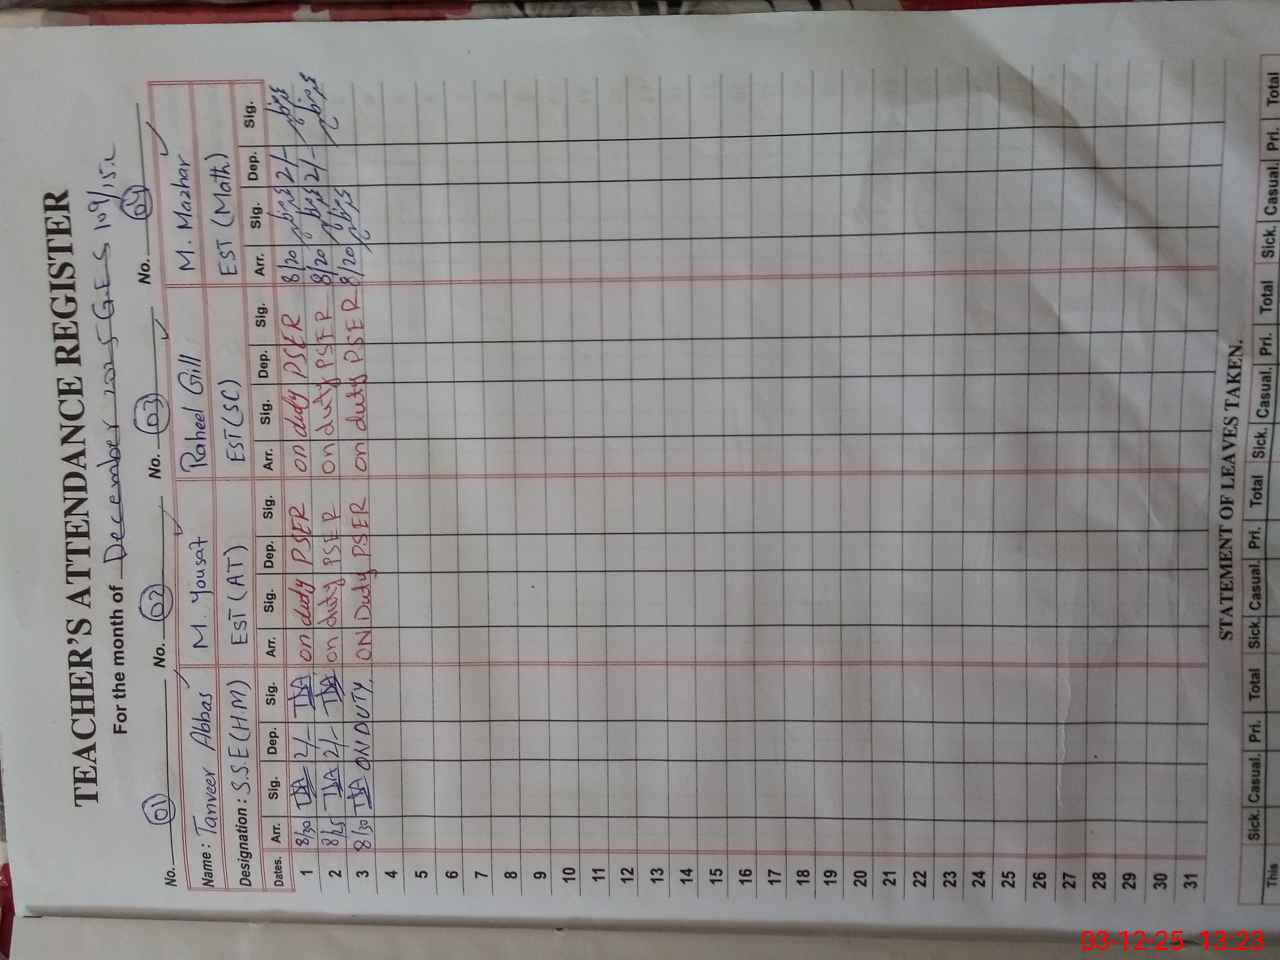 TEACHER'S ATTENDANCE REGISTER
For the month of December 2025 G.E.S 109/15.L
No. 01 No. 02 No. 03 No. 04
Name: Tanveer Abbas M. Yousaf Raheel Gill M. Mazhar
Designation: S.S.E (H M) EST (AT) EST (SC) EST (Math)
Dates. Arr. Sig. Dep. Sig. Arr. Sig. Dep. Sig. Arr. Sig. Dep. Sig. Arr. Sig. Dep. Sig.
1 8/30 TBA 2/- TBA on duty PSER on duty PSER 8/20 2/-
2 8/25 TBA 2/- TBA on duty PSER on duty PSER 8/20 2/-
3 8/30 TBA ON DUTY ON Duty PSER on duty PSER 8/20
4
5
6
7
8
9
10
11
12
13
14
15
16
17
18
19
20
21
22
23
24
25
26
27
28
29
30
31
STATEMENT OF LEAVES TAKEN.
Sick. Casual. Pri. Total Sick. Casual. Pri. Total Sick. Casual. Pri. Total Sick. Casual. Pri. Total
This
03-12-25 13:23